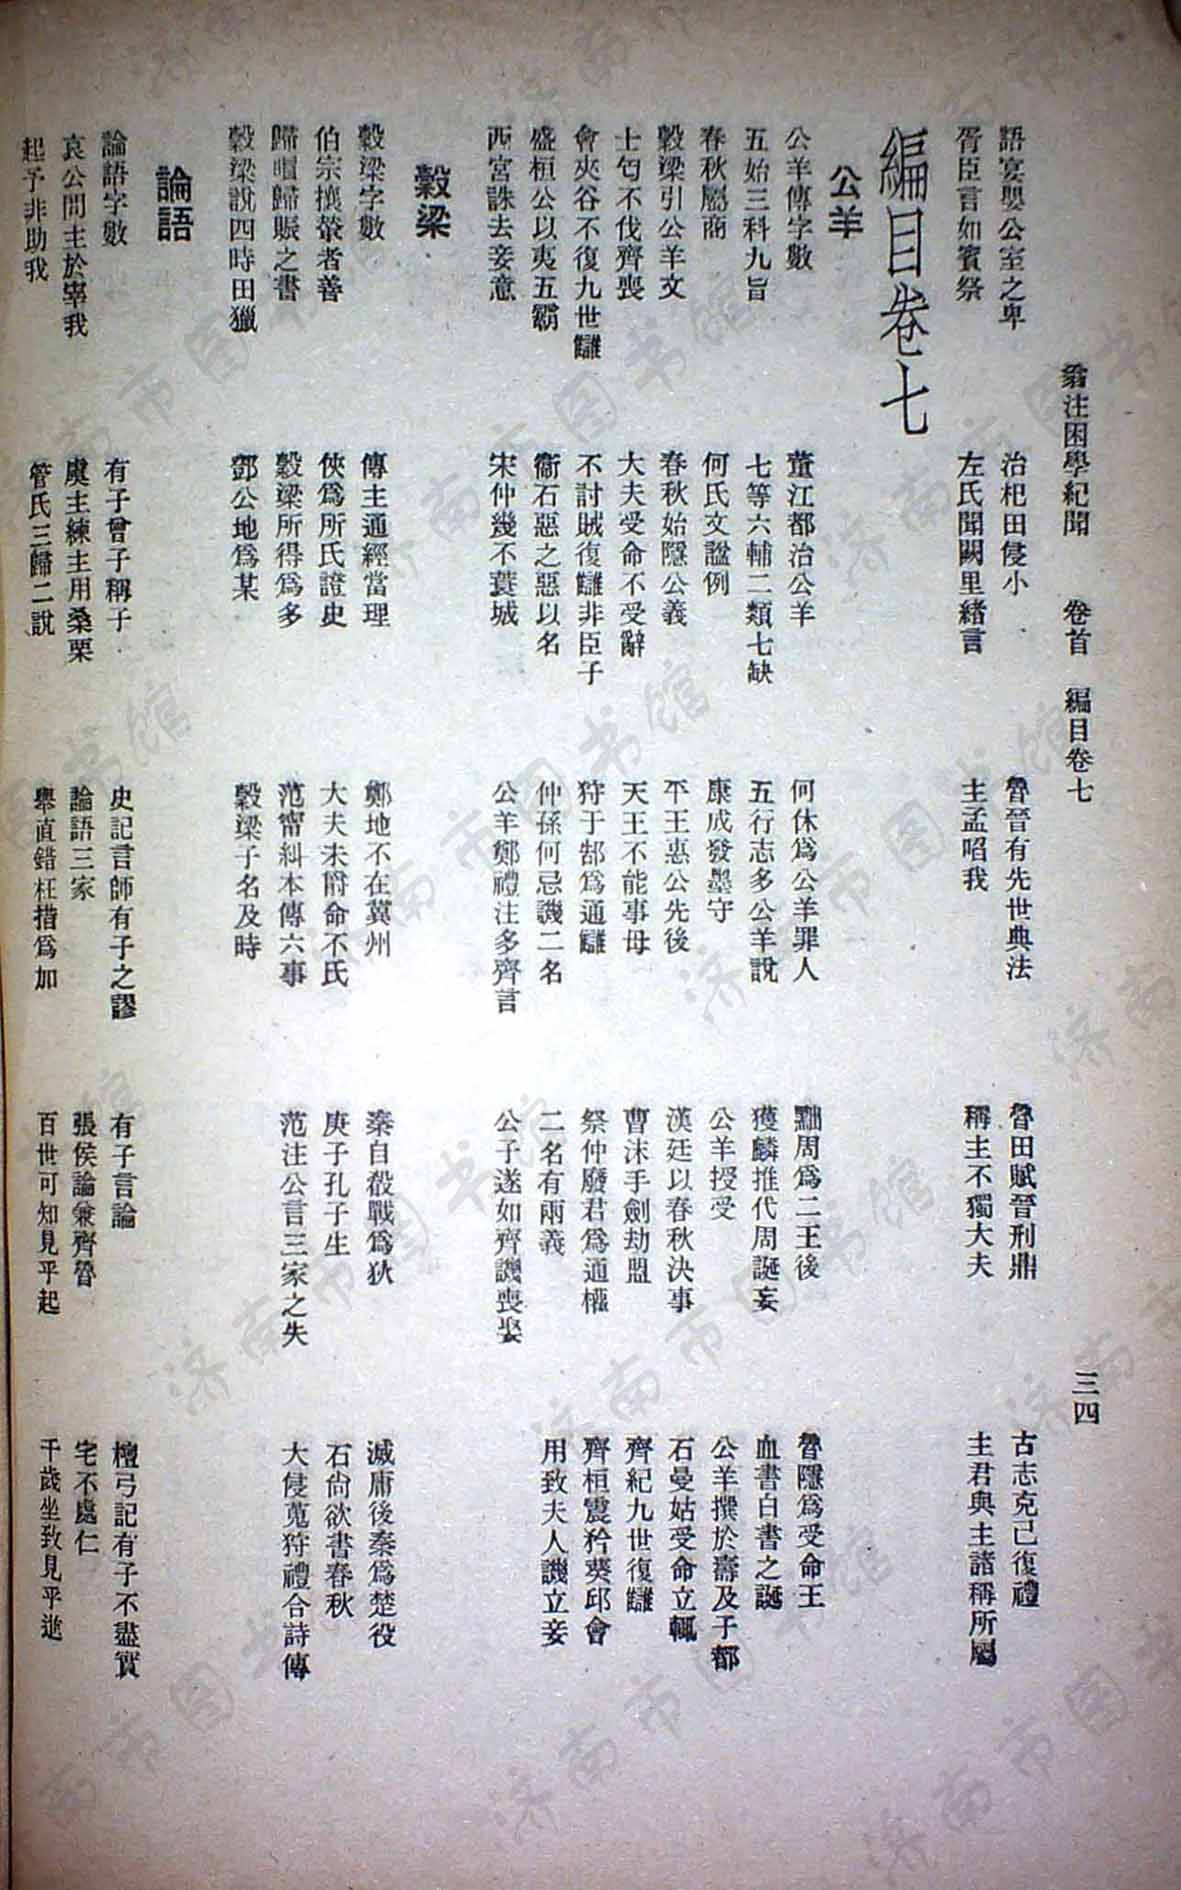 翁注困學紀聞　卷首　編目卷七　三四
語宴嬰公室之卑　治杞田侵小　魯晉有先世典法　魯田賦晉刑鼎　古志克己復禮
胥臣言如賓祭　左氏聞闕里緒言　主孟昭我　稱主不獨大夫　主君與主諸稱所屬
編目卷七
公羊
公羊傳字數　董江都治公羊　何休爲公羊罪人　黜周爲二王後　魯隱爲受命王
五始三科九旨　七等六輔二類七缺　五行志多公羊說　獲麟推代周誕妄　血書白書之誕
春秋屬商　何氏文謚例　康成發墨守　公羊授受　公羊撰於壽及子都
穀梁引公羊文　春秋始隱公義　平王惠公先後　漢廷以春秋決事　石曼姑受命立輒
士匄不伐齊喪　大夫受命不受辭　天王不能事母　曹沫手劍劫盟　齊紀九世復讎
會夾谷不復九世讎　不討賊復讎非臣子　狩于郜爲通讎　祭仲廢君爲通權　齊桓震矜葵邱會
盛桓公以夷五霸　衞石惡之惡以名　仲孫何忌譏二名　二名有兩義　用致夫人譏立妾
西宮誅去妾意　宋仲幾不蓑城　公羊鄭禮注多齊言　公子遂如齊譏喪娶
穀梁
穀梁字數　傳主通經當理　鄭地不在冀州　秦自殽戰爲狄　滅庸後秦爲楚役
伯宗攘輦者善　俠爲所氏證史　大夫未爵命不氏　庚子孔子生　石尙欲書春秋
歸脤之書　穀梁所得爲多　范甯糾本傳六事　范注公言三家之失　大侵蒐狩禮合詩傳
穀梁說四時田獵　鄧公地爲某　穀梁子名及時
論語
論語字數　有子曾子稱子　史記言師有子之謬　有子言論　檀弓記有子不盡實
哀公問主於宰我　虞主練主用桑栗　論語三家　張侯論兼齊魯　宅不處仁
起予非助我　管氏三歸二說　舉直錯枉措爲加　百世可知見乎起　千歲坐致見乎迹